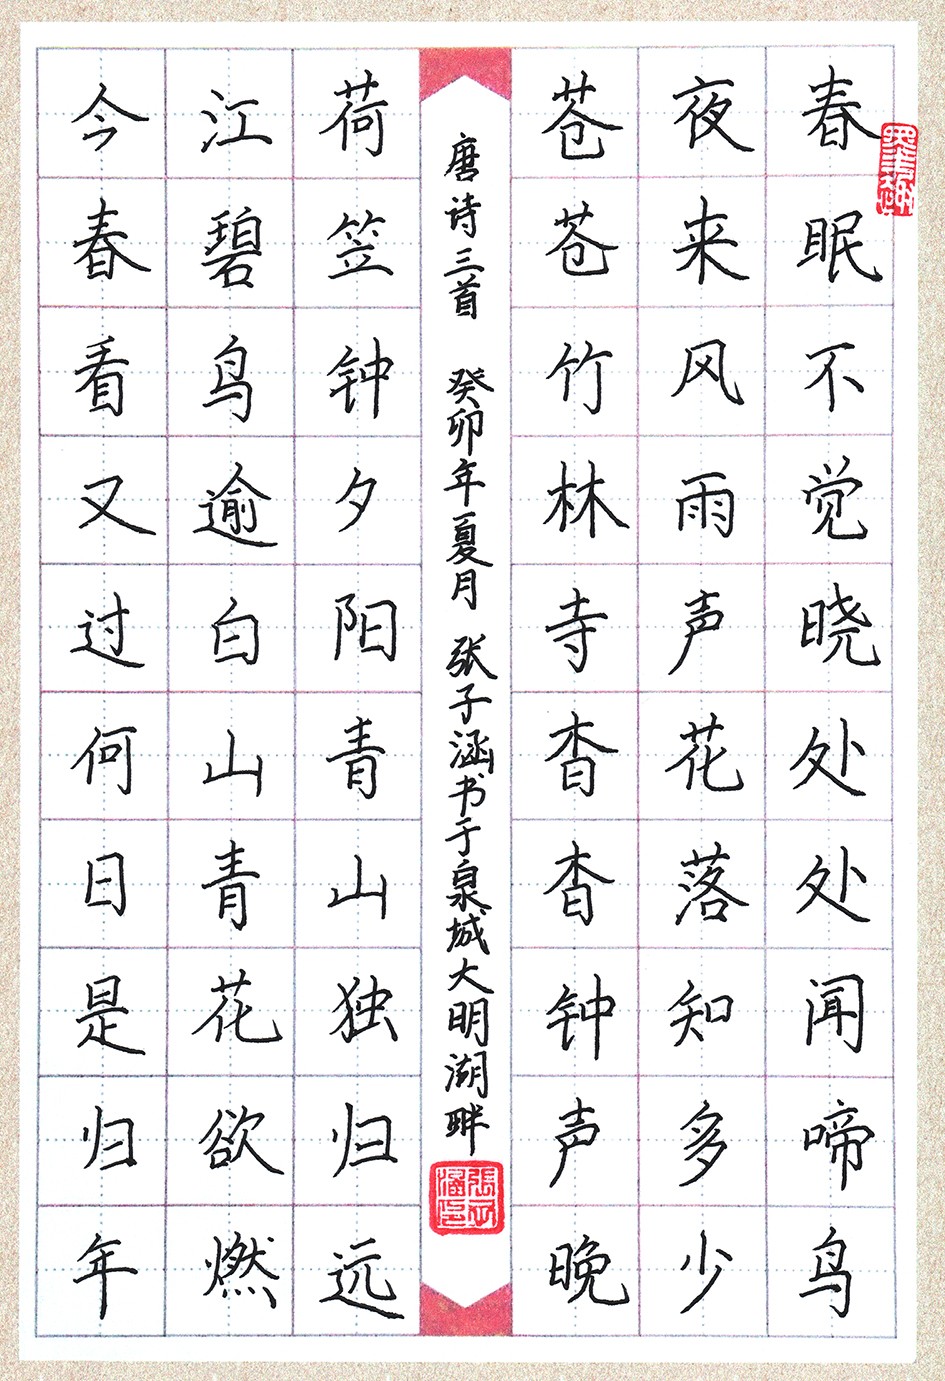 春眠不觉晓处处闻啼鸟
夜来风雨声花落知多少
苍苍竹林寺杳杳钟声晚
唐诗三首 癸卯年夏月 张子涵书于泉城大明湖畔
張子涵印
荷笠钟夕阳青山独归远
江碧鸟逾白山青花欲燃
今春看又过何日是归年